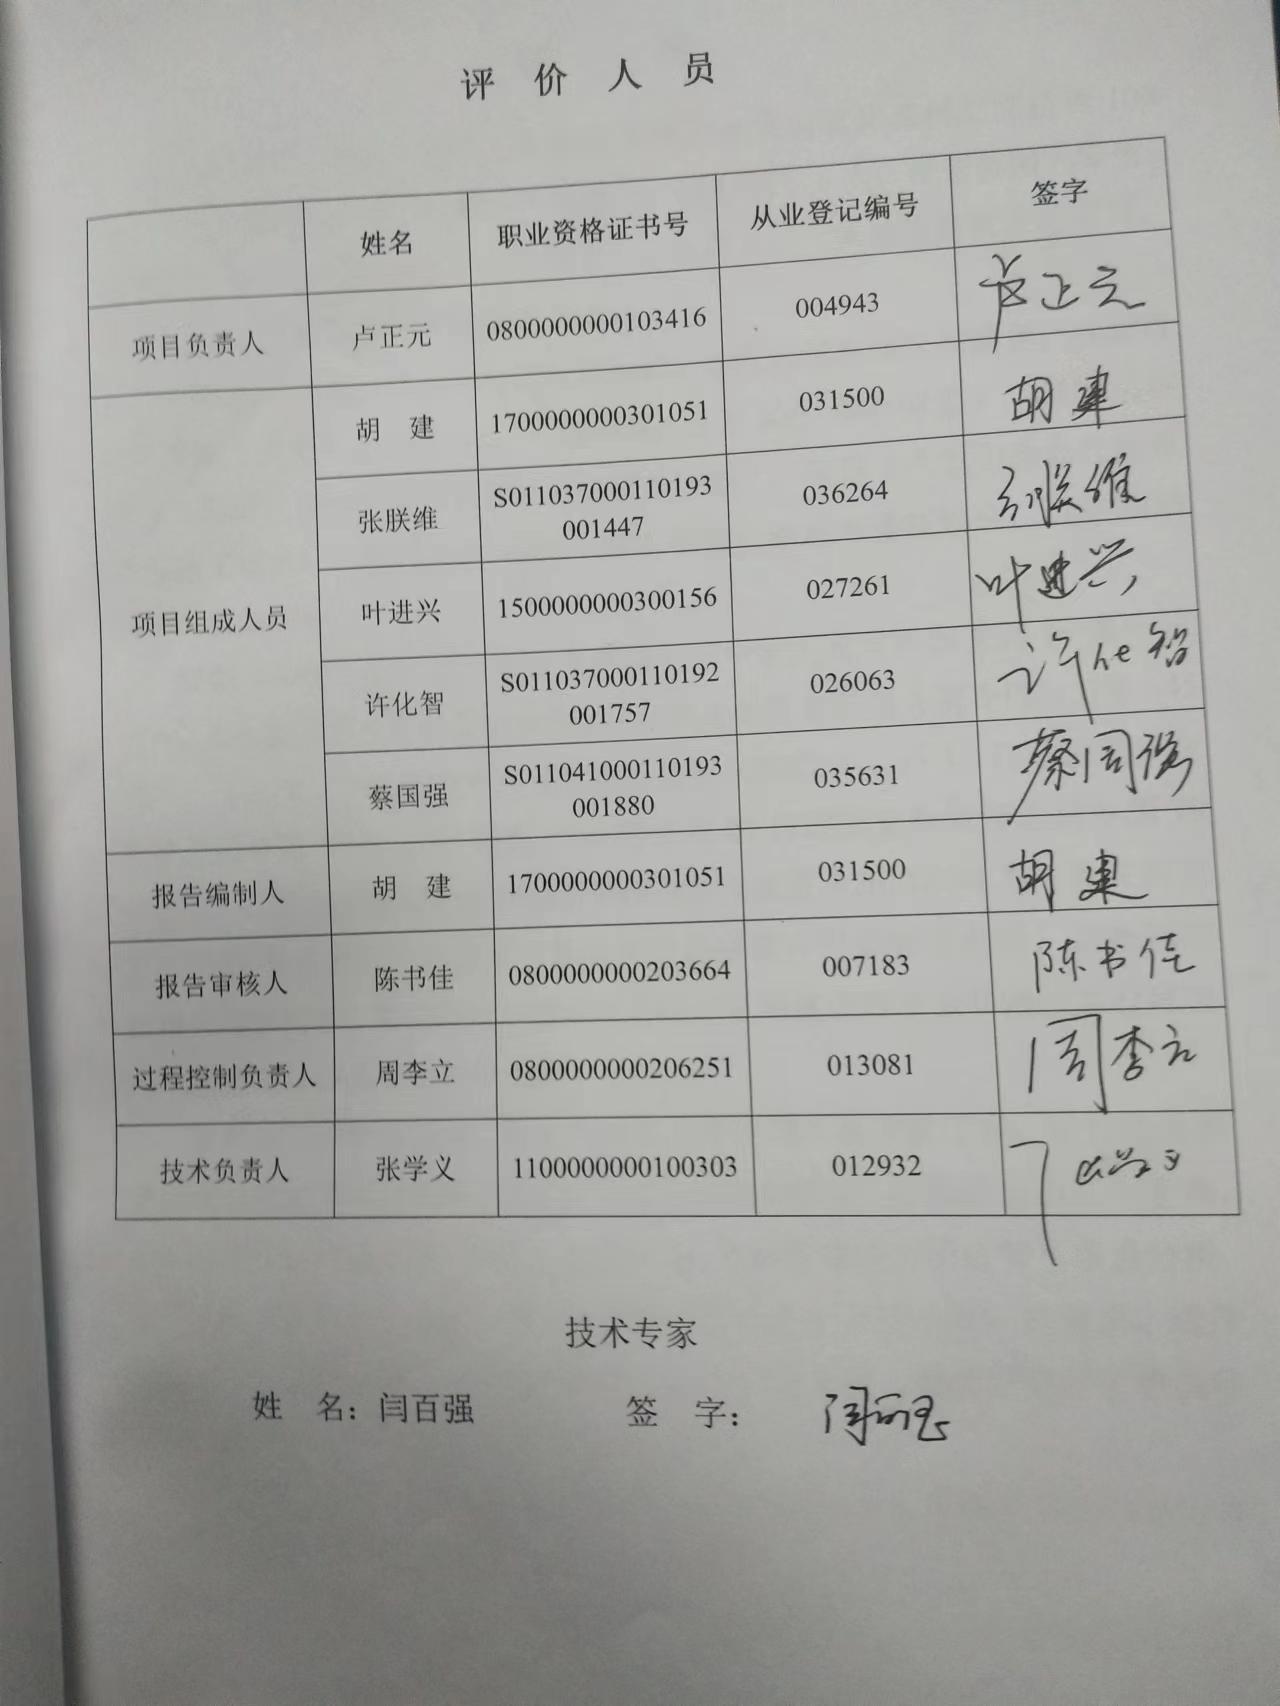 评价人员
姓名 职业资格证书号 从业登记编号 签字
项目负责人 卢正元 0800000000103416 004943 卢正元
项目组成人员
胡 建 1700000000301051 031500 胡建
张朕维 S011037000110193
001447 036264 张朕维
叶进兴 1500000000300156 027261 叶进兴
许化智 S011037000110192
001757 026063 许化智
蔡国强 S011041000110193
001880 035631 蔡国强
报告编制人 胡 建 1700000000301051 031500 胡建
报告审核人 陈书佳 0800000000203664 007183 陈书佳
过程控制负责人 周李立 0800000000206251 013081 周李立
技术负责人 张学义 1100000000100303 012932
技术专家
姓 名：闫百强 签 字： 闫百强